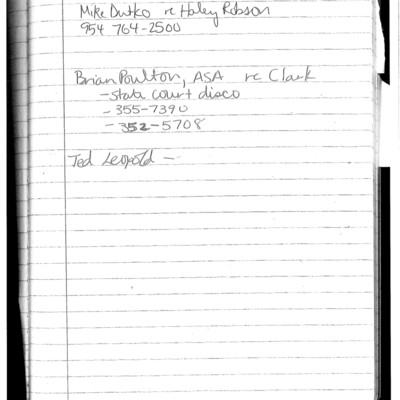 Mike Dutko re Haley Robson
954 764-2500
Brian Poulton, ASA re Clark
- state court disco
- 355-7390
- 352-5708
Ted Leopold -